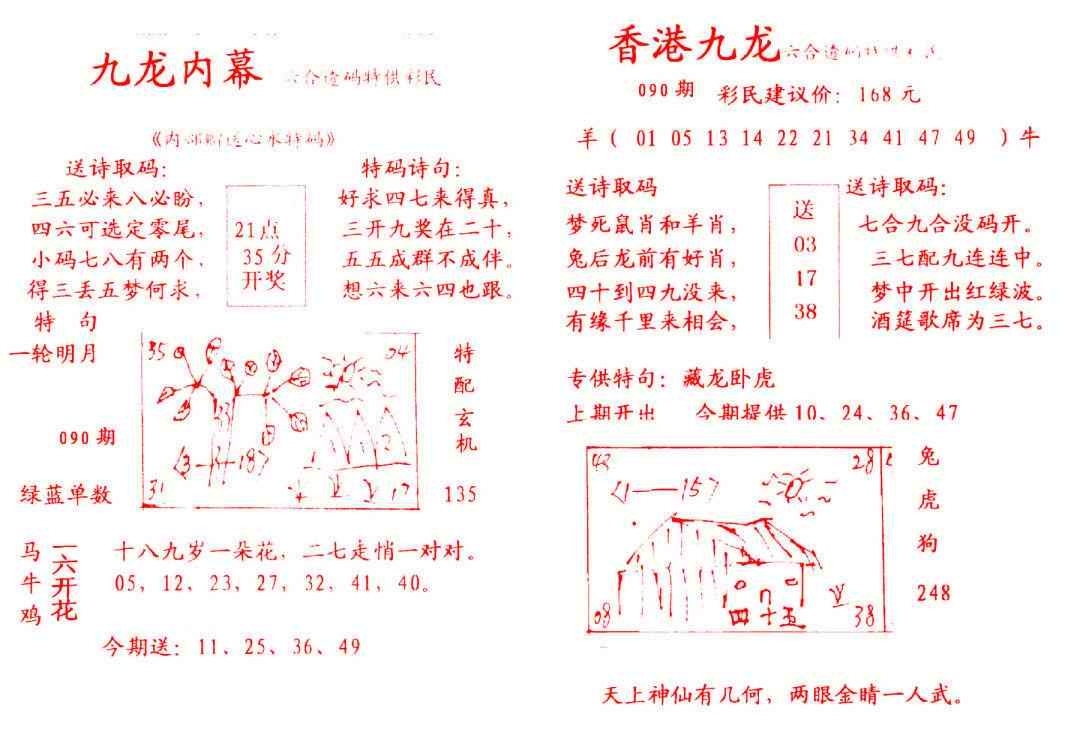 九龙内幕 六合透码特供彩民
送诗取码:
三五必来八必盼,
四六可选定零尾,
小码七八有两个,
得三丢五梦何求,
21点
35分
开奖
特码诗句:
好求四七来得真,
三开九奖在二十,
五五成群不成伴。
想六来六四也跟。
特 句
一轮明月
090期
绿蓝单数
35
04
31
17
特
配
玄
机
135
马
牛
鸡
一六开花
十八九岁一朵花, 二七走悄一对对。
05, 12, 23, 27, 32, 41, 40。
今期送: 11、25、36、49
香港九龙
090期 彩民建议价: 168元
羊( 01 05 13 14 22 21 34 41 47 49 )牛
送诗取码
梦死鼠肖和羊肖,
兔后龙前有好肖,
四十到四九没来,
有缘千里来相会,
送
03
17
38
送诗取码:
七合九合没码开。
三七配九连连中。
梦中开出红绿波。
酒筵歌席为三七。
专供特句: 藏龙卧虎
上期开出 今期提供10、24、36、47
42
28
08
38
四十五
兔
虎
狗
248
天上神仙有几何, 两眼金睛一人武。